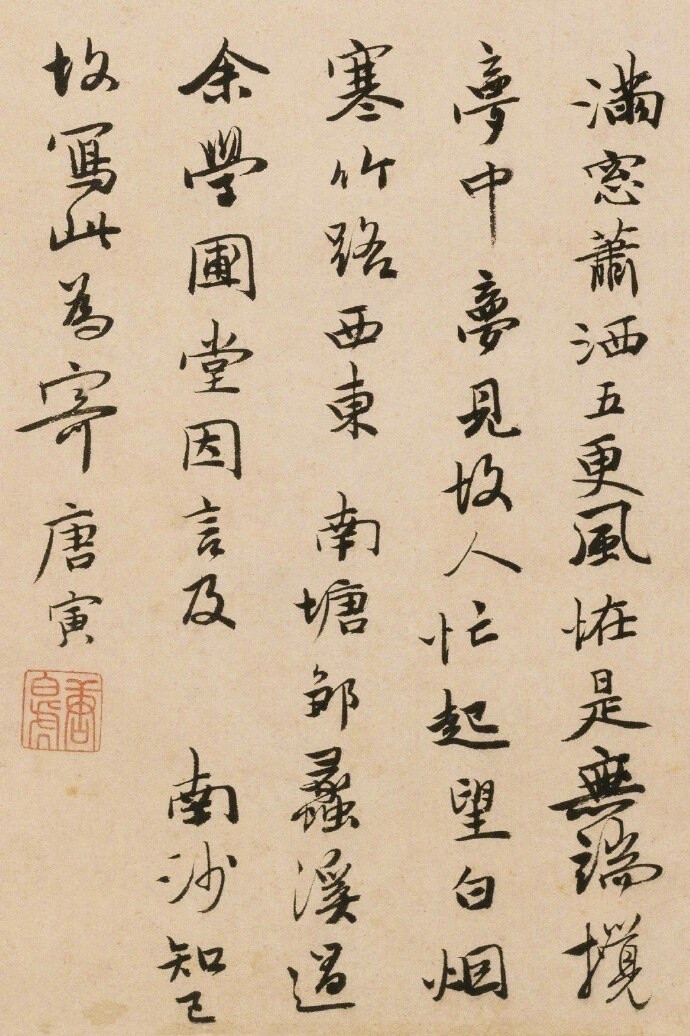 滿窓蕭洒五更風恠是無端攪
夢中夢見故人忙起望白烟
寒竹路西東 南塘邹蠡溪過
余學圃堂因言及 南沙知己
故寫此為寄 唐寅
唐白虎